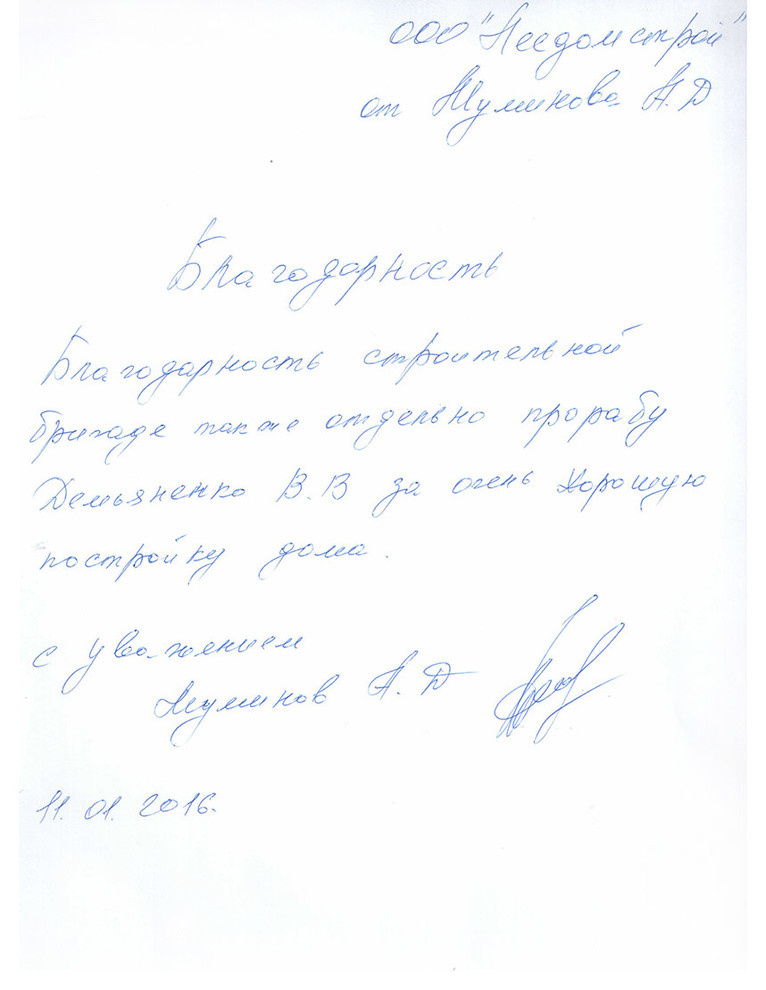 ООО "Неедомстрой"
от Муминова А.Д
Благодарность
Благодарность строительной
бригаде также отдельно прорабу
Демьяненко В.В за очень хорошую
постройку дома.
с уважением
Муминов А.Д
11.01.2016.